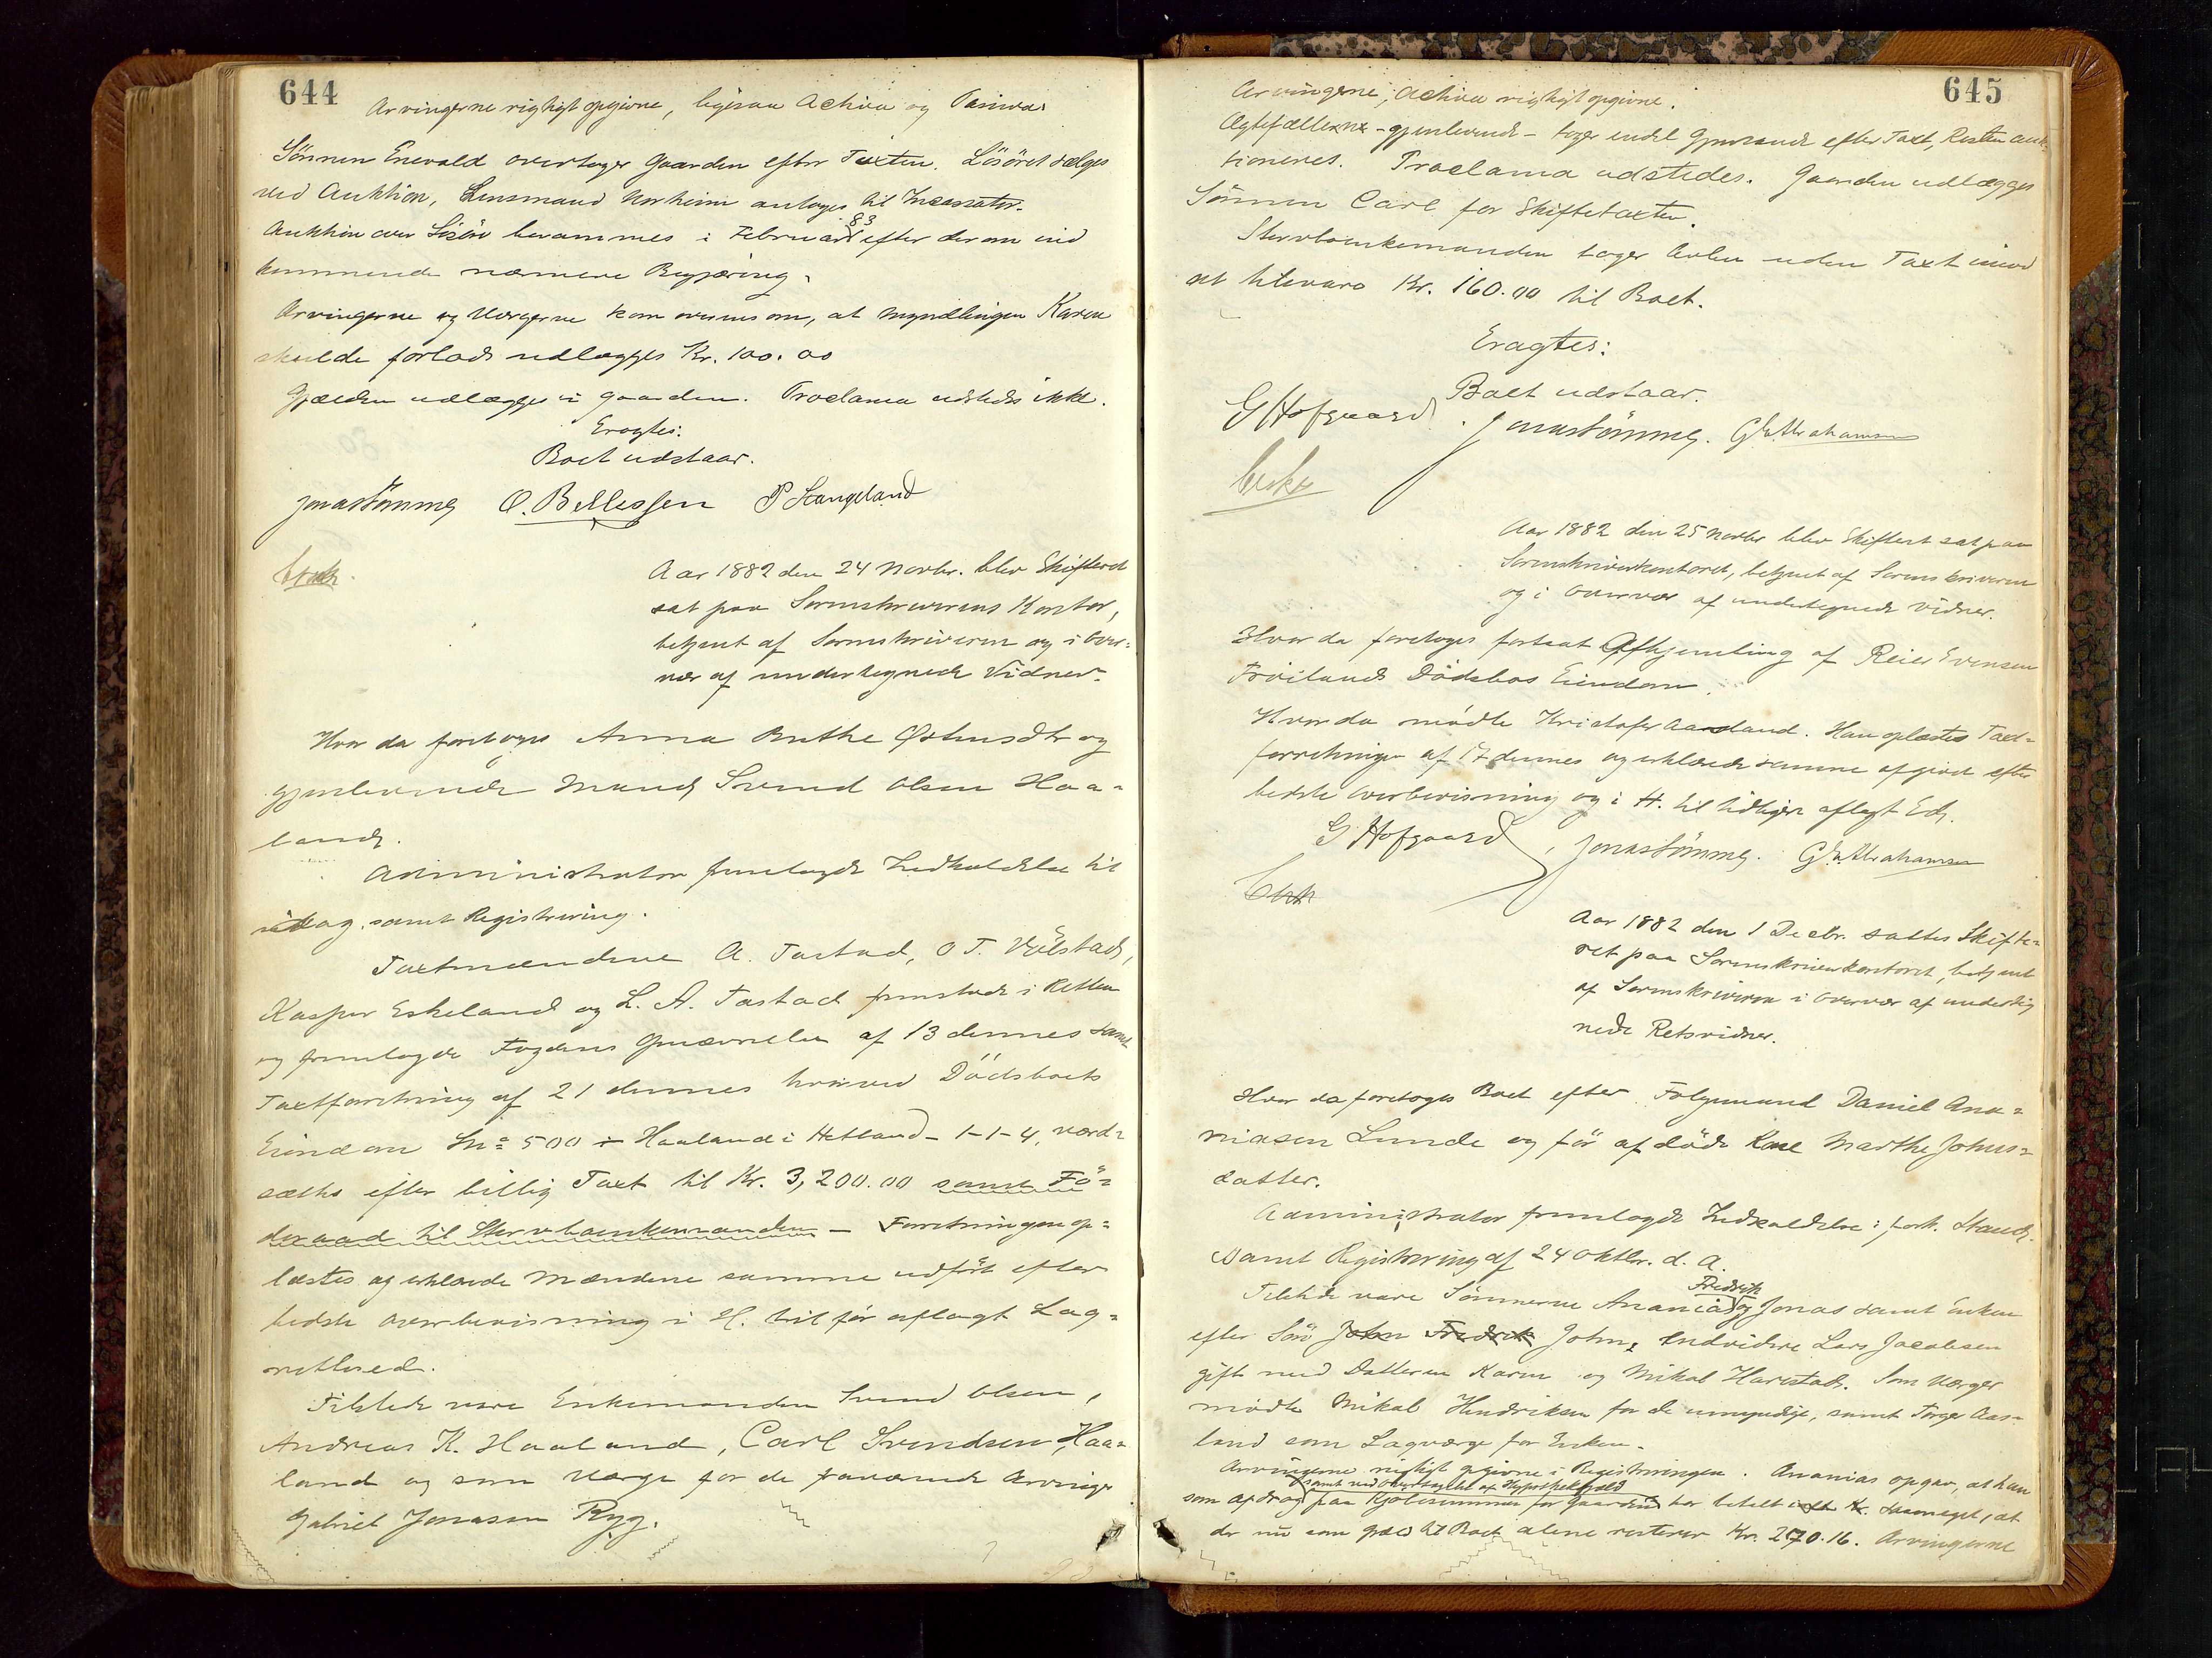 644
Arvingerne rigtigt opgivne, ligesaa Activa og Passiva.
Sönnen Enevald overtager Gaarden efter Taxten. Lösöret sælges
ved Auktion, Lensmand Norheim antages til Incassator.
Auktion over Lösöre berammes i Februar 83 efter derom ind
kommende nærmere Begjæring.
Arvingerne og Værgerne kom overens om, at Myndlingen Karen
skulde forlods udlægges Kr. 100.00
Gjælden udlægges i Gaarden. Proclama udstedes ikke.
Eragtes:
Boet udstaar.
Jonas Tömmey O. Bellessen P Stangeland
Aar 1882 den 24 Novbr. blev Skifteret
sat paa Sorenskriverens Kontor,
betjent af Sorenskriveren og i Over-
vær af undertegnede Vidner.
Hvor da foretoges Anna Berthe Östensdtr og
gjenlevende Mand Svend Olsen Haa-
land.
Administrator fremlagde Indkaldelse til
idag samt Registrering.
Taxtmændene A. Tastad, O T. Vølstad,
Kasper Eskeland og L. A. Tastad fremstode i Retten
og fremlagde Fogdens Opnævnelse af 13 dennes samt
Taxtforretning af 21 dennes hvorved Dödsboets
Eiendom Ln: 500 i Haaland i Hetland 1-1-4, værd-
sattes efter billig Taxt til Kr. 3,200.00 samt Fö-
deraad til Stervboenkemanden - Forretningen op-
læstes og erklærede Mændene samme udfört efter
bedste Overbevisning i H. til för aflagt Lag-
retteed.
Tilstede vare Enkemanden Svend Olsen,
Andreas K. Haaland, Carl Svendsen Haa-
land og som Værge for de fraværende Arvinger
Gabriel Jonasen Ryg.
645
Arvingerne, Activa rigtigt opgivne.
Ægtefællerne - gjenlevende - tager endel Gjenstande efter Taxt, Resten auk-
tioneres. Proclama udstedes. Gaarden udlægges
Sönnen Carl for Skiftetaxten.
Stervboenkemanden tager Avlen uden Taxt imod
at tilsvare Kr. 160.00 til Boet.
Eragtes:
Boet udstaar.
G Hofgaard. Jonas Tömmey. G E Abrahamsen
Aar 1882 den 25 Novbr blev Skifteret sat paa
Sorenskriverkontoret, betjent af Sorenskriveren
og i Overvær af undertegnede Vidner.
Hvor da foretoges fortsat Afhjemling af Reier Evensen
Fröilands Dödsbos Eiendom.
Hvor da mödte Kristofer Aasland. Han oplæstes Taxt-
forretningen af 17 dennes og erklærede samme afgivet efter
bedste Overbevisning og i H. til tidligere aflagt Ed.
G Hofgaard, Jonas Tömmey. G E Abrahamsen
Aar 1882 den 1 Decbr. sattes Skifte-
ret paa Sorenskriverkontoret, betjent
af Sorenskriveren i Overvær af underteg
nede Retsvidner.
Hvor da foretoges Boet efter Folgemand Daniel Ana-
niasen Lunde og för afdöde Kone Marthe Johns-
datter.
Administrator fremlagde Indkaldelse i fork. Stand
samt Registrering af 24 Oktbr. d. A.
Tilstede vare Sönnerne Ananias Fredrik og Jonas samt Enken
efter Sön John Fredrik John, endvidere Lars Jacobsen
gift med Datteren Karen og Mikal Harestad. Som Værger
mödte Mikal Hendriksen for de umyndige, samt Torger Aas-
land som Lagværge for Enken.
Arvingerne rigtigt opgivne i Registreringen. Ananias opgav, at han
samt ved Overtagelse af Hypothekgjeld
som afdrag paa Kjöbesummen for Gaarden har betalt Kr. saameget, at
der nu som gæld til Boet alene resterer Kr. 270.16. Arvingerne